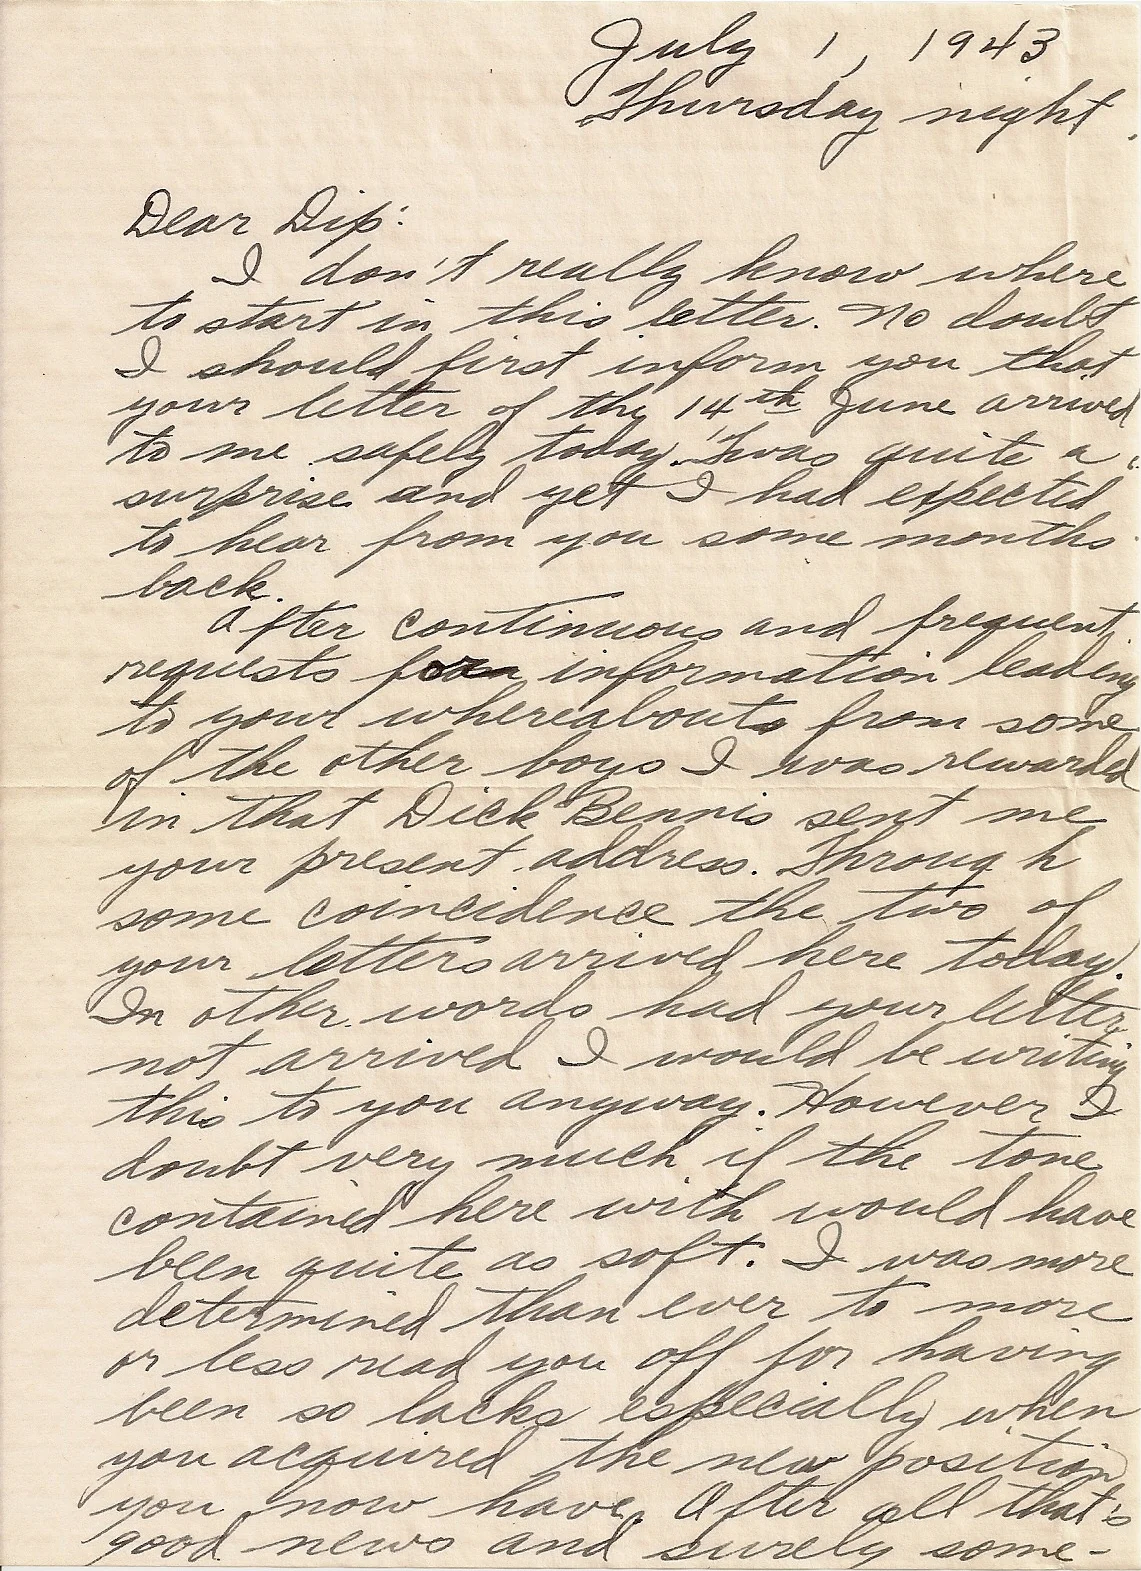 July 1, 1943
Thursday night.
Dear Dip:
I don't really know where
to start in this letter. No doubt
I should first inform you that
your letter of the 14th June arrived
to me safely today. 'Twas quite a
surprise and yet I had expected
to hear from you some months
back.
After continuous and frequent
requests for information leading
to your whereabouts from some
of the other boys I was rewarded
in that Dick Bennis sent me
your present address. Through
some coincidence the two of
your letters arrived here today.
In other words had your letter
not arrived I would be writing
this to you anyway. However I
doubt very much if the tone
contained here with would have
been quite as soft. I was more
determined than ever to more
or less read you off for having
been so lacks especially when
you acquired the new position
you now have. After all that's
good news and surely some-